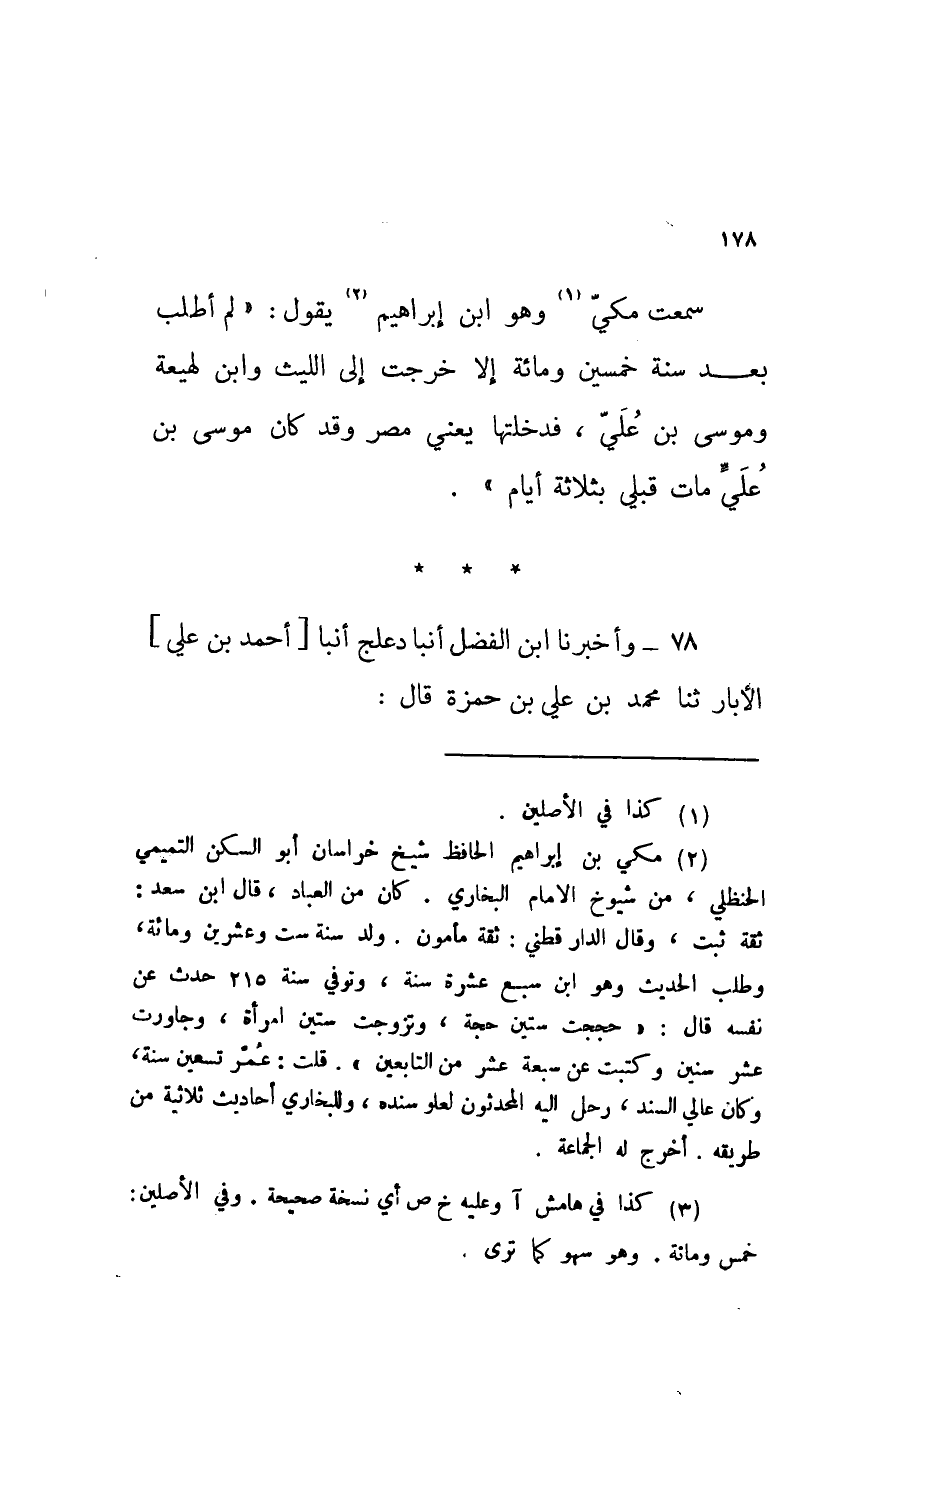 ١٧٨
سمعت مكيّ (١) وهو ابن إبراهيم (٢) يقول : « لم أطلب
بعـــد سنة خمسين ومائة إلا خرجت إلى الليث وابن لهيعة
وموسى بن عُلَيّ ، فدخلتها يعني مصر وقد كان موسى بن
عُلَيٍّ مات قبلي بثلاثة أيام » .
* * *
٧٨ ــ وأخبرنا ابن الفضل أنبا دعلج أنبا [ أحمد بن علي ]
الأبار ثنا محمد بن علي بن حمزة قال :
(١) كذا في الأصلين .
(٢) مكي بن إبراهيم الحافظ شيخ خراسان أبو السكن التميمي
الحنظلي ، من شيوخ الامام البخاري . كان من العباد ، قال ابن سعد :
ثقة ثبت ، وقال الدار قطني : ثقة مأمون . ولد سنة ست وعشرين ومائة ،
وطلب الحديث وهو ابن سبع عشرة سنة ، وتوفي سنة ٢١٥ حدث عن
نفسه قال : « حججت ستين حجة ، وتزوجت ستين امرأة ، وجاورت
عشر سنين وكتبت عن سبعة عشر من التابعين » . قلت : عُمّر تسعين سنة ،
وكان عالي السند ، رحل اليه المحدثون لعلو سنده ، وللبخاري أحاديث ثلاثية من
طريقه . أخرج له الجماعة .
(٣) كذا في هامش آ وعليه خ ص أي نسخة صحيحة . وفي الأصلين :
خمس ومائة . وهو سهو كما ترى .